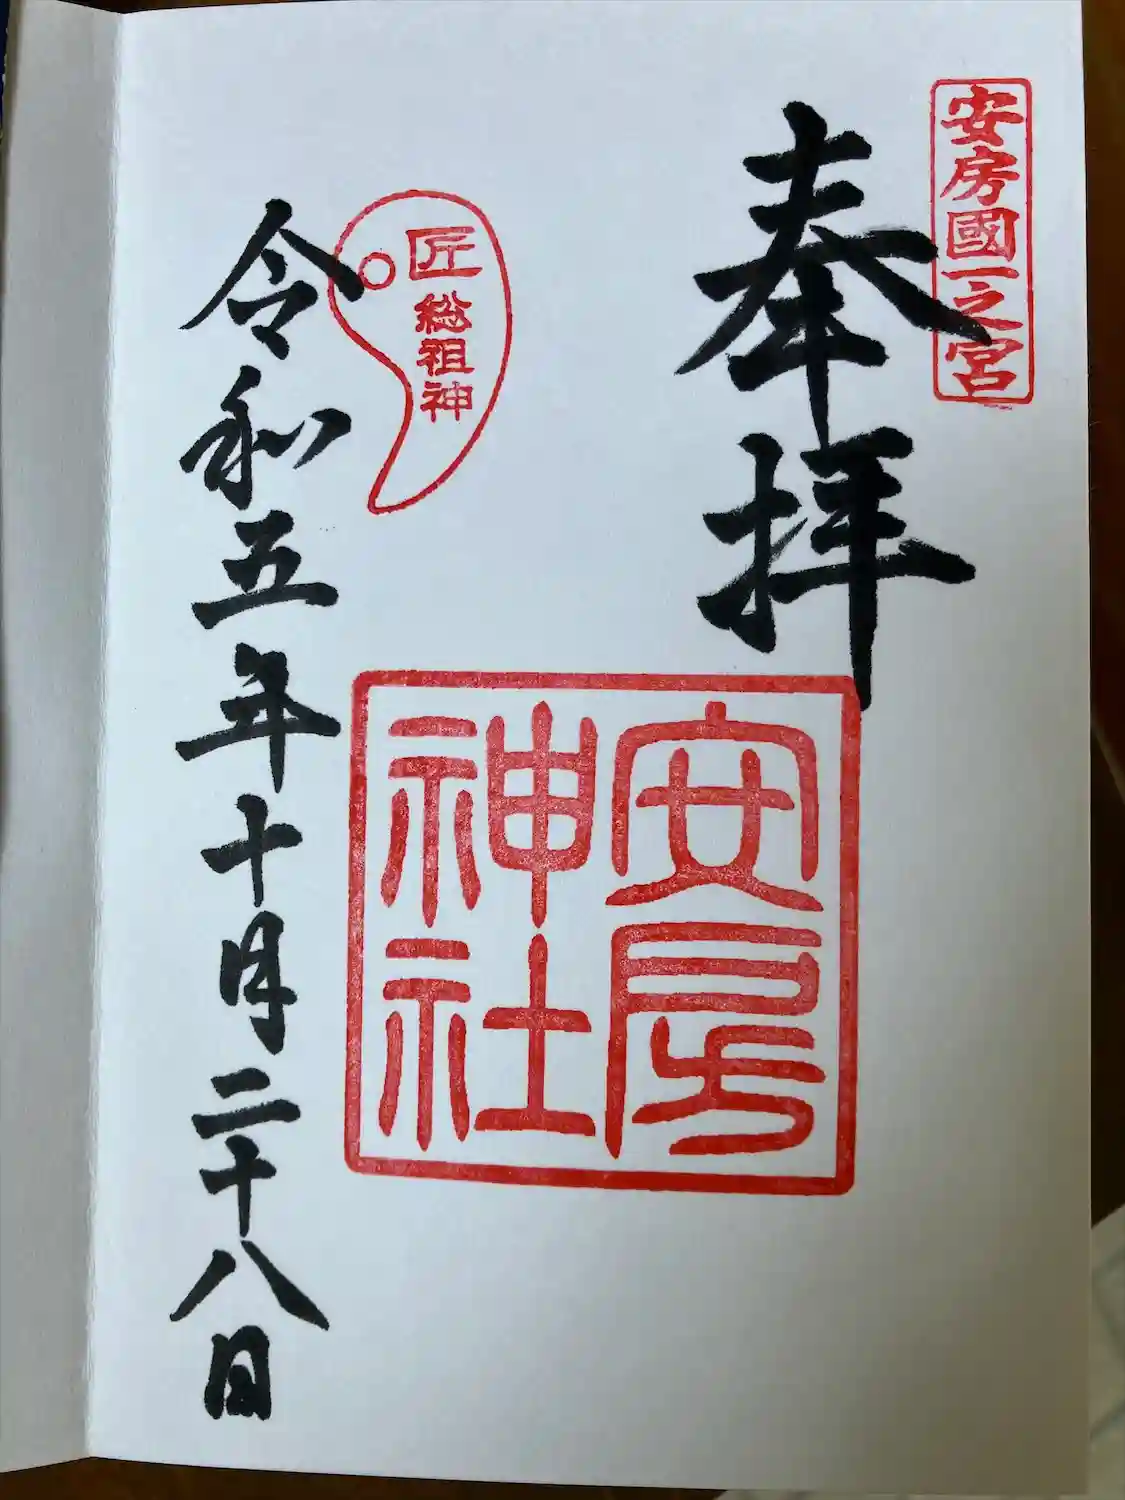 安房國一之宮
奉拝
安房
神社
匠総祖神
令和五年十月二十八日